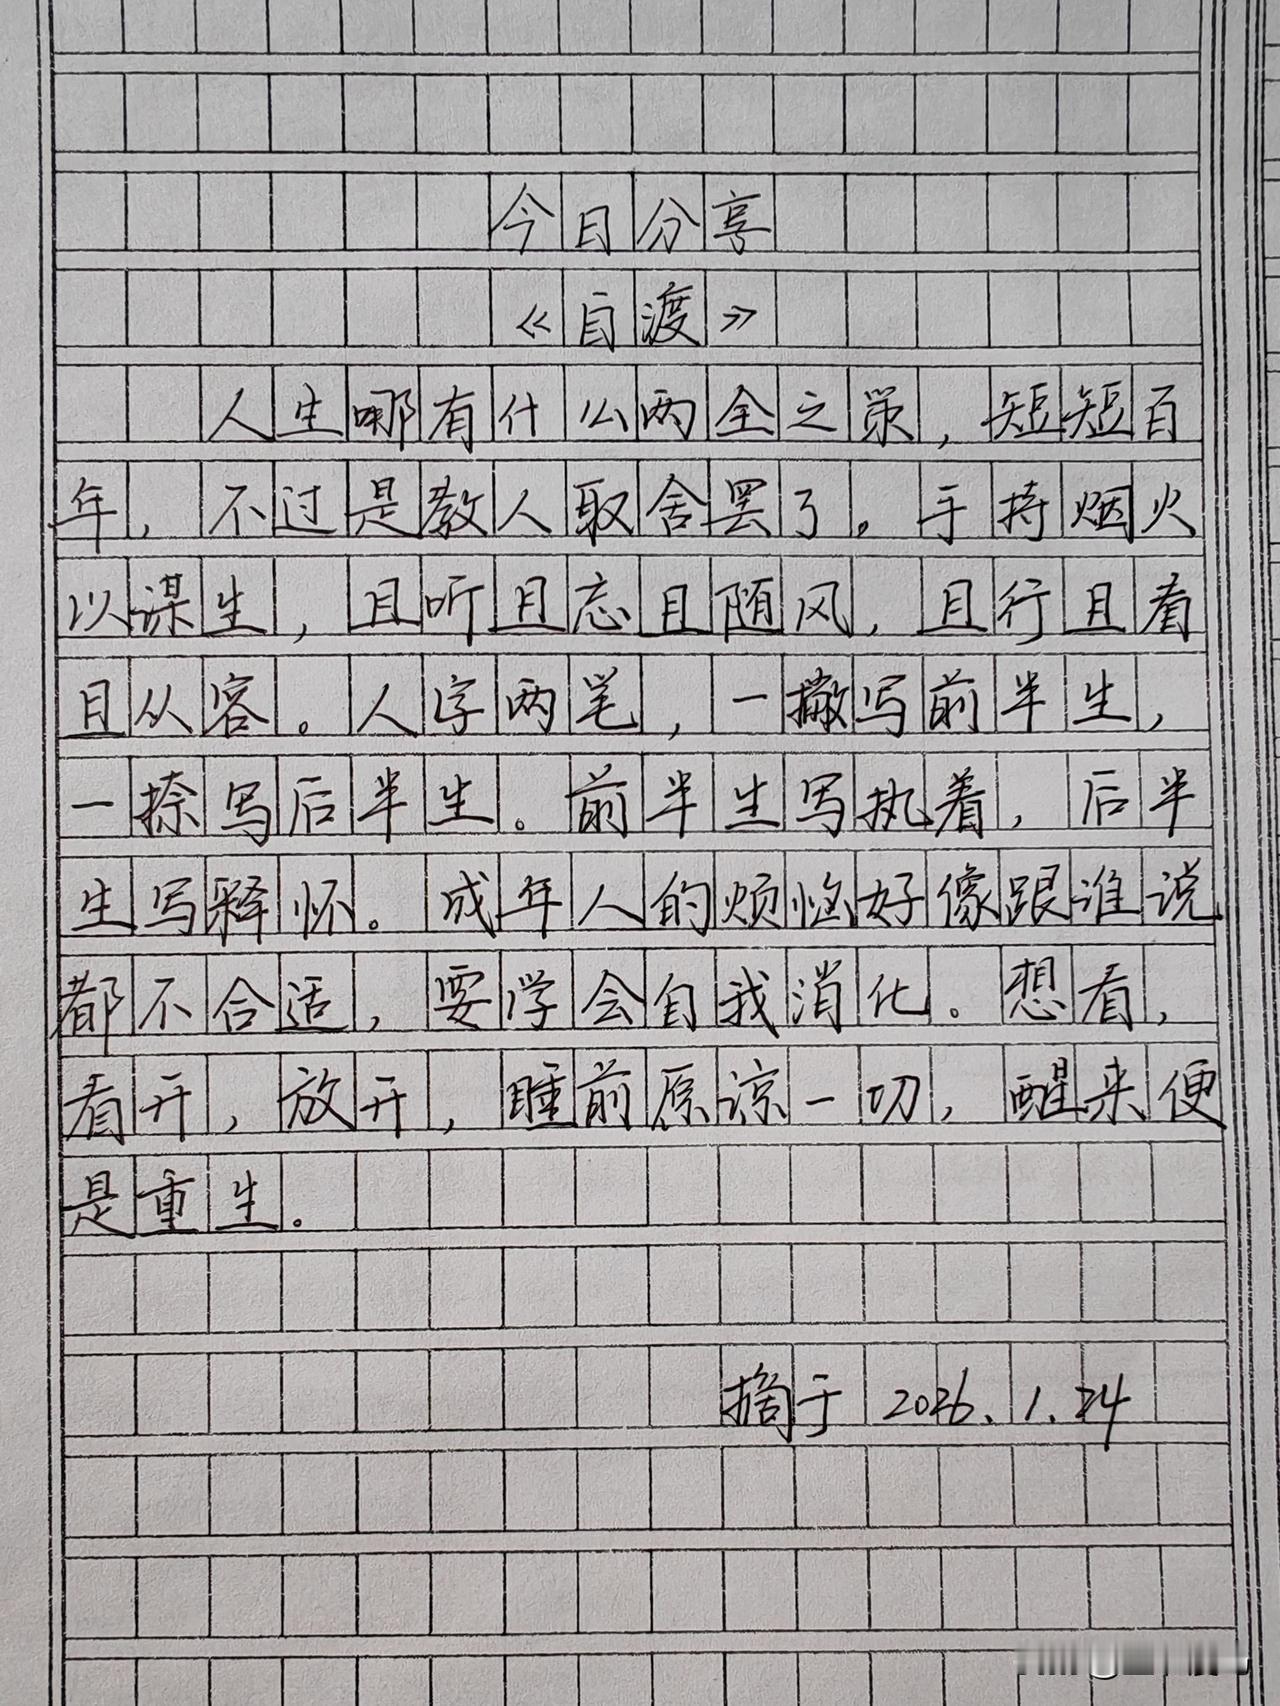 今日分享
《自渡》
人生哪有什么两全之策，短短百
年，不过是教人取舍罢了。手持烟火
以谋生，且听且忘且随风，且行且看
且从容。人字两笔，一撇写前半生，
一捺写后半生。前半生写执着，后半
生写释怀。成年人的烦恼好像跟谁说
都不合适，要学会自我消化。想看，
看开，放开，睡前原谅一切，醒来便
是重生。
摘于 2026.1.24